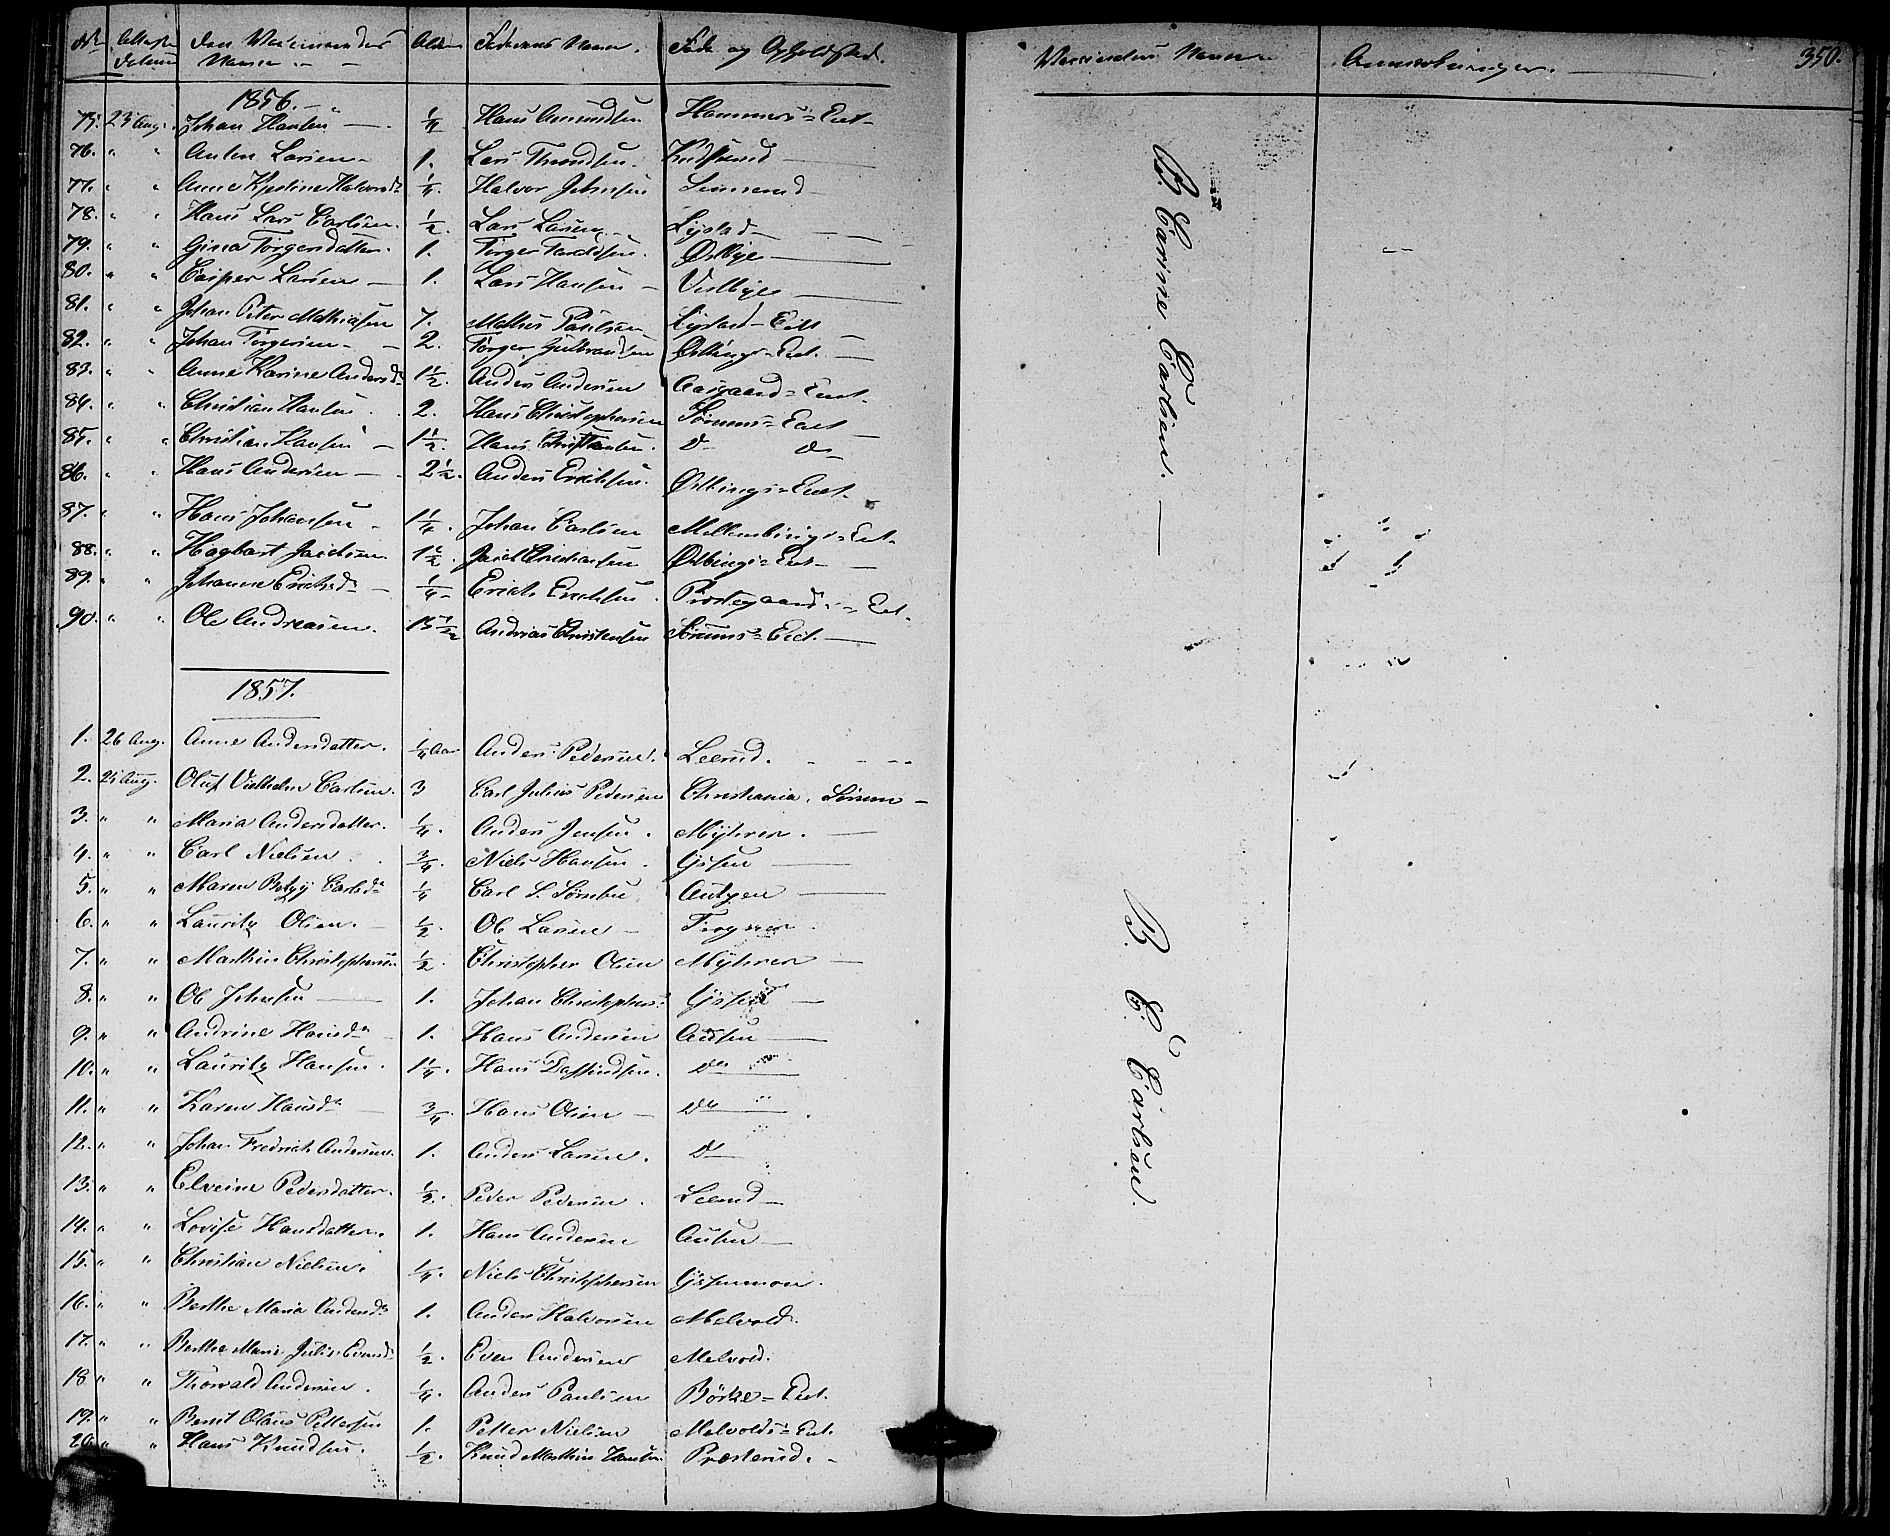 No Attestens Datum Den Vaccineredes Navne Alder Faderens Navn. Føde og Opholdssted. Vaccinators Navn Anmærkninger. 350.
1856.
75. 23 Aug. Johan Hansen 1/4 Hans Amundsen Hammers=Eiet
76. " " Anten Larsen 1. Lars Throndsen
77. " " Anne Kjerstine Halvorsdr 1/4. Halvor Johnsen
78. " " Hans Lars Carlsen. 1/2. Lars Larsen Lystad
79. " " Gina Torgersdatter. 1. Torger Østbye
80. " " Casper Larsen 1. Lars Hansen Vestbye
81. " " Johan Peter Mathiasen 7. Mathis Paulsen Lystad=Eiet
82. " " Johan Torgersen 2. Torger Gulbrandsen Østbings=Eiet.
83. " " Anne Karine Andersdr 1 1/2. Anders Andersen Aasgaard=Eiet.
84. " " Christian Hansen 2. Hans Christophersen Sørums=Eiet
85. " " Christian Hansen 1 1/2. Hans Christiansen. Do Do
86. " " Hans Andersen 2 1/2. Anders Erichsen. Østbings=Eiet.
87. " " Hans Johansen 1 1/4. Johan Carlsen Mellembings=Eiet.
88. " " Hagbart 1 1/2. Østbings=Eiet
89. " " Johanne Erichsd 1/4. Erich Erichsen. Prestegaards=Eiet.
90. " " Ole Andreasen. 15 1/2 Andreas Christensen Sørums=Eiet.
B. Carine Carlsen.
1857.
1. 26 Aug. Anne Andersdatter. 1/4 Aar Anders Pedersen. Leerud.
2. 25 Aug. Oluf Vilhelm Carlsen. 3 Carl Julius Pedersen Christiania. Sørum
3. " " Maria Andersdatter. 1/4. Anders Jensen. Myhren.
4. " " Carl Nielsen. 3/4. Niels Hansen.
5. " " Maren Betzy Carlsdr 1/4 Carl S. Sørnbu
6. " " Lauritz Olsen. 1/2. Ole Larsen Frogner
7. " " Marthin Christophersen 1/2. Christopher Olsen Myhren
8. " " Ole Johnsen 1. Johan Christophers.
9. " " Andrine Hansdr 1. Hans Andersen
10. " " Lauritz Hansen. 1 1/4. Hans Do
11. " " Karen Hansdr 3/4. Hans Olsen Do
12. " " Johan Fredrich Andersen. 1. Anders Larsen. Do
13. " " Elveine Pedersdatter. 1/2. Peder Pedersen. Leerud
14. " " Lovise Hansdatter. 1. Hans Andersen
15. " " Christian Nielsen. 1/4. Niels Christophersen
16. " " Berthe Maria Andersdr 1. Anders Halvorsen Melvold.
17. " " Berthe Marie Julie Evensdr 1/2. Even Andersen Melvold.
18 " " Thorvald Andersen. 1/4. Anders Paulsen Børke=Eiet.
19. " " Bernt Olaus Pettersen 1. Petter Nielsen Melvolds=Eiet.
20. " " Hans Knudsen. 1/2. Knud Mathias Hansen. Præsterud.
B. C. Carlsen.